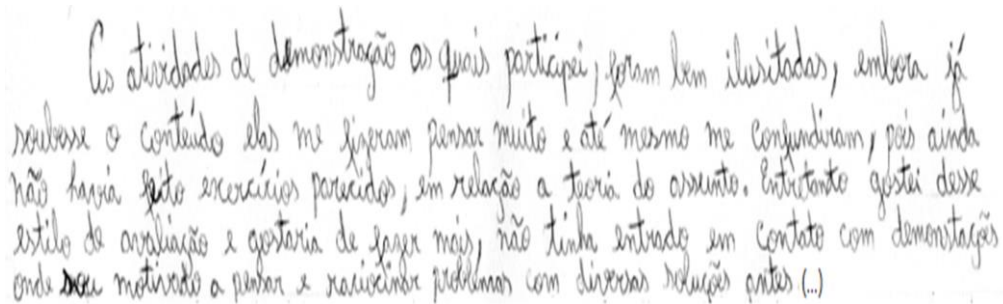 As atividades de demonstração as quais participei, foram bem ilusitadas, embora já
soubesse o conteúdo elas me fizeram pensar muito e até mesmo me confundiram, pois ainda
não havia feito exercícios parecidos, em relação a teoria do assunto. Entretanto gostei desse
estilo de avaliação e gostaria de fazer mais, não tinha entrado em contato com demonstações
onde sou motivado a pensar e raciocinar problemas com diversas soluções antes (...)